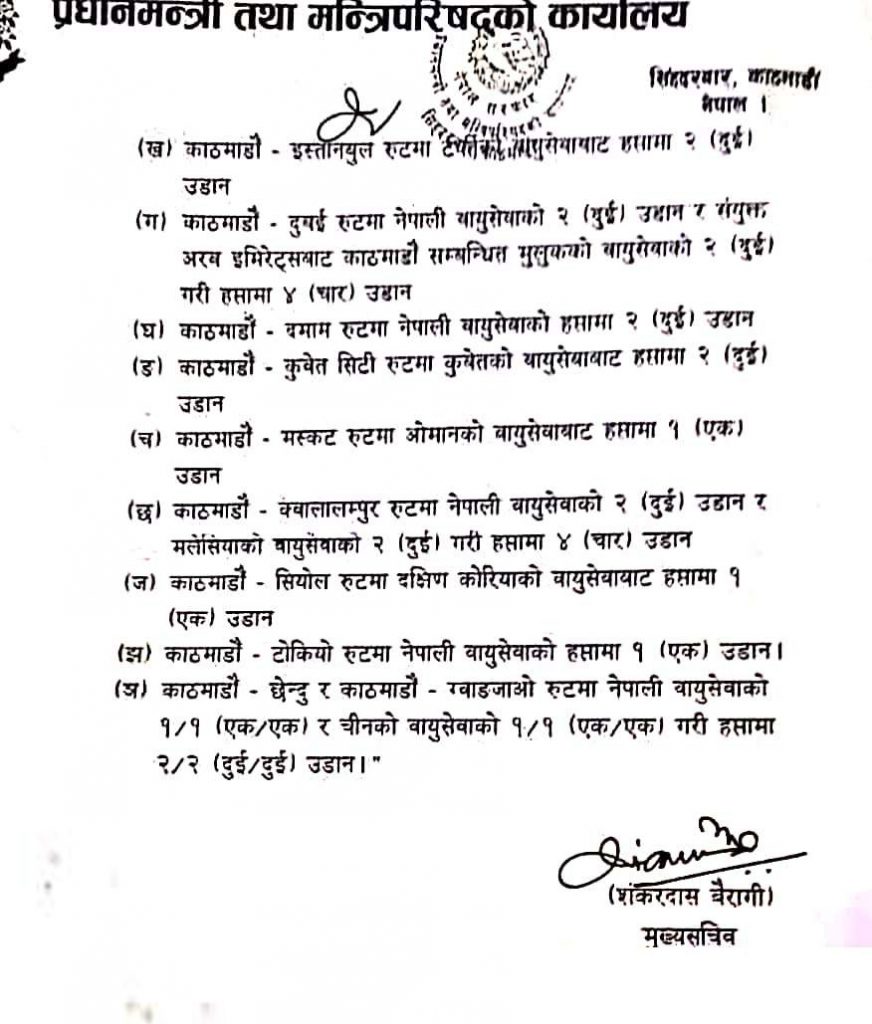 प्रधानमन्त्री तथा मन्त्रिपरिषद्को कार्यालय
सिंहदरबार, काठमाडौं
नेपाल ।
नेपाल सरकार
(ख) काठमाडौं - इस्तानबुल रुटमा टर्कीको वायुसेवाबाट हप्तामा २ (दुई)
उडान
(ग) काठमाडौं - दुबई रुटमा नेपाली वायुसेवाको २ (दुई) उडान र संयुक्त
अरब इमिरेट्सबाट काठमाडौं सम्बन्धित मुलुकको वायुसेवाको २ (दुई)
गरी हप्तामा ४ (चार) उडान
(घ) काठमाडौं - दमाम रुटमा नेपाली वायुसेवाको हप्तामा २ (दुई) उडान
(ङ) काठमाडौं - कुवेत सिटी रुटमा कुवेतको वायुसेवाबाट हप्तामा २ (दुई)
उडान
(च) काठमाडौं - मस्कट रुटमा ओमानको वायुसेवाबाट हप्तामा १ (एक)
उडान
(छ) काठमाडौं - क्वालालम्पुर रुटमा नेपाली वायुसेवाको २ (दुई) उडान र
मलेसियाको वायुसेवाको २ (दुई) गरी हप्तामा ४ (चार) उडान
(ज) काठमाडौं - सियोल रुटमा दक्षिण कोरियाको वायुसेवाबाट हप्तामा १
(एक) उडान
(झ) काठमाडौं - टोकियो रुटमा नेपाली वायुसेवाको हप्तामा १ (एक) उडान।
(ञ) काठमाडौं - छेन्दु र काठमाडौं - ग्वाङजाओ रुटमा नेपाली वायुसेवाको
१/१ (एक/एक) र चीनको वायुसेवाको १/१ (एक/एक) गरी हप्तामा
२/२ (दुई/दुई) उडान।"
(शंकरदास बैरागी)
मुख्यसचिव